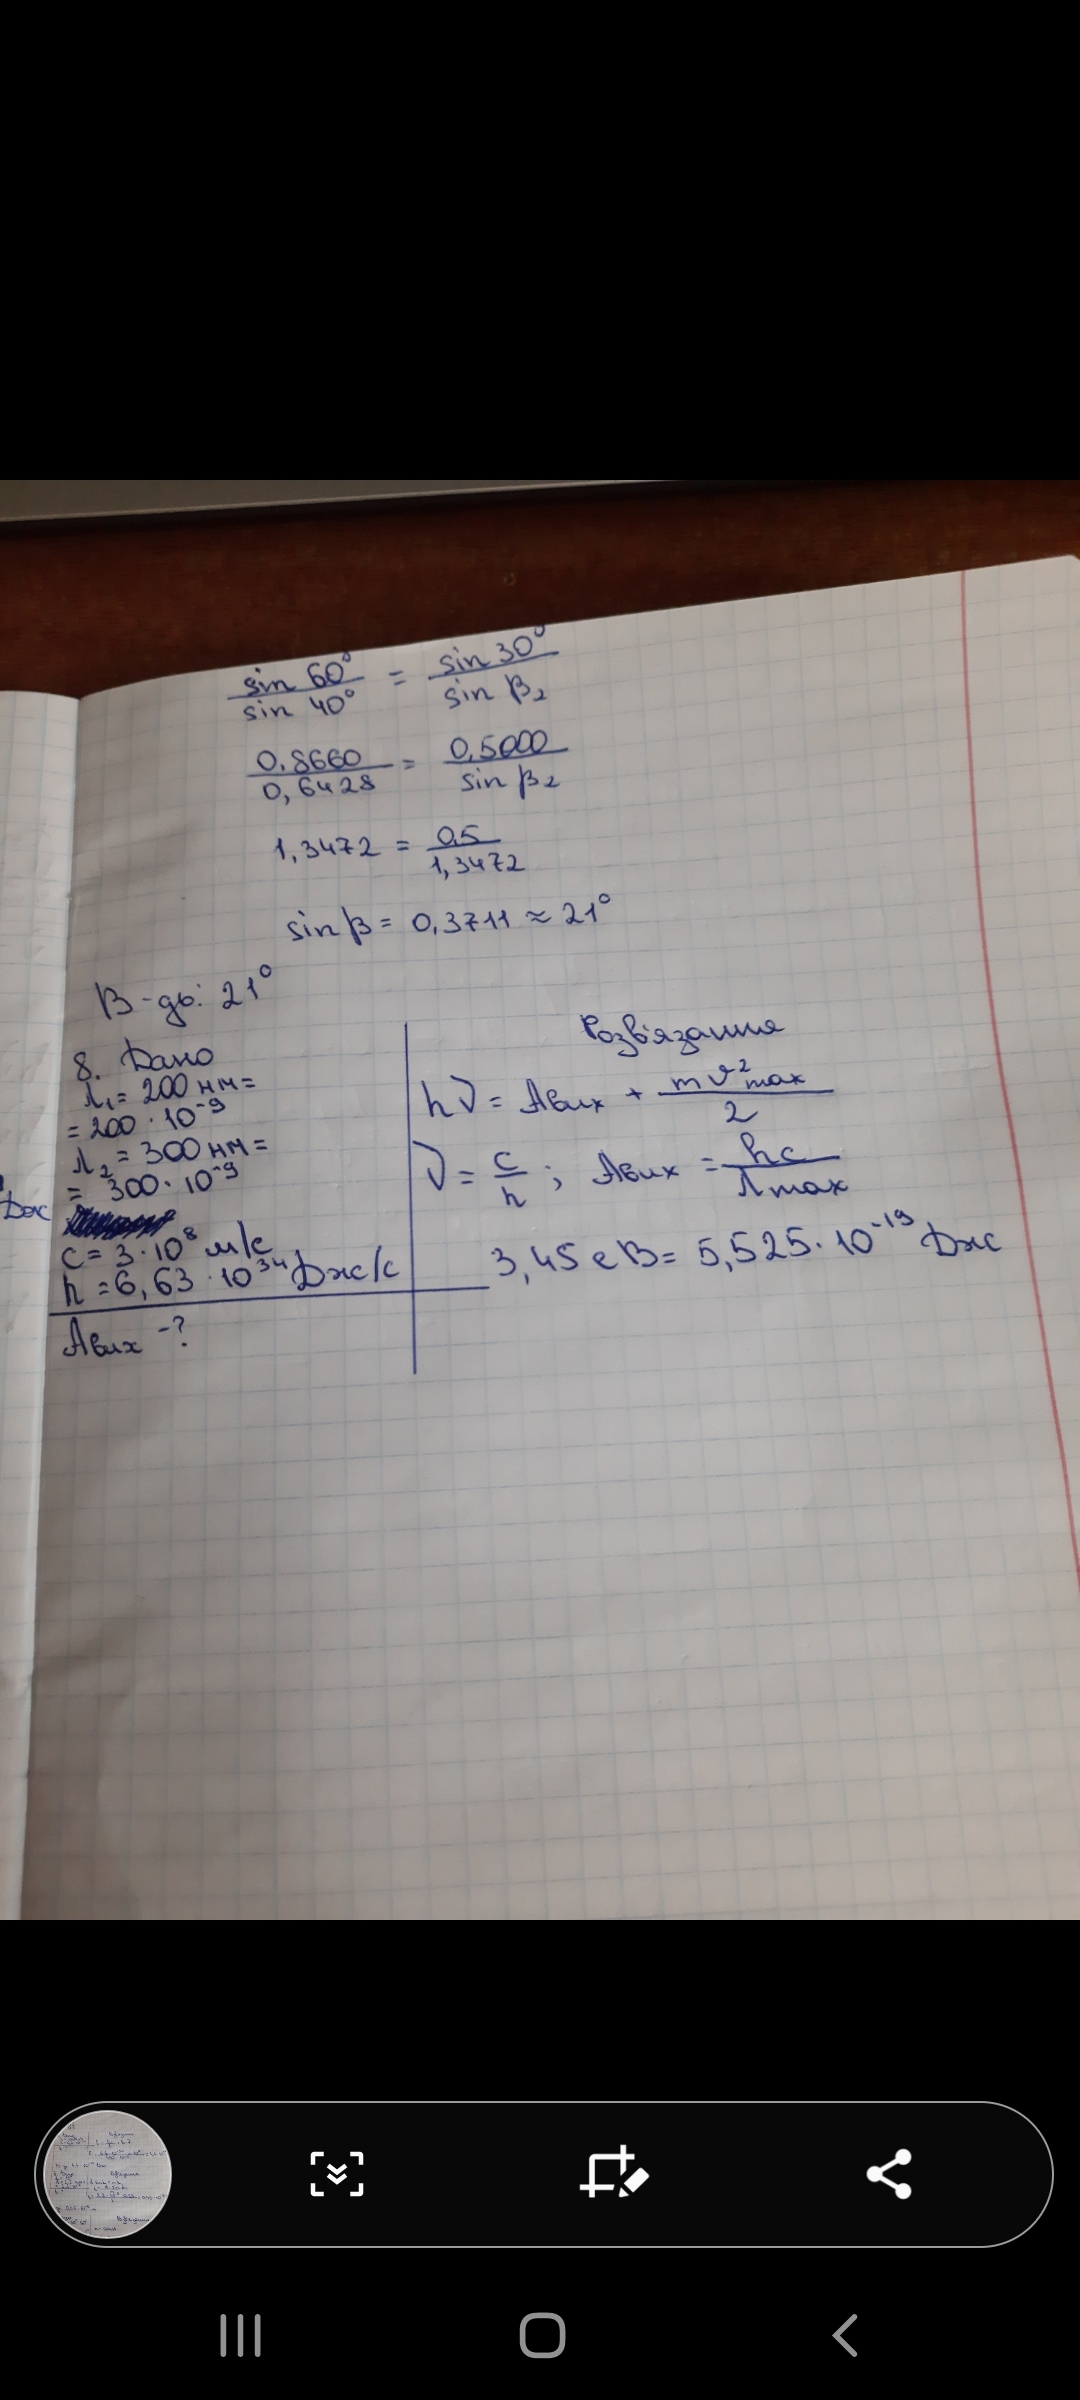 sin 60° / sin 40° = sin 30° / sin β₂
0.8660 / 0,6428 = 0,5000 / sin β₂
1,3472 = 0,5 / 1,3472
sin β = 0,3711 ≈ 21°
В-дь: 21°
8. Дано
λ₁ = 200 нм =
= 200 · 10⁻⁹
λ₂ = 300 нм =
= 300 · 10⁻⁹
Дж
c = 3 · 10⁸ м/с
h = 6,63 · 10³⁴ Дж/с
Авих -?
Розв'язання
hν = Авих + mv²max / 2
ν = c / h ; Авих = hc / λmax
3,45 еВ = 5,525 · 10⁻¹⁹ Дж